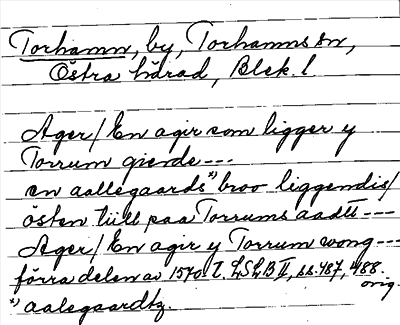 Torhamn, by, Torhamns sn,
Östra härad, Blek. l
Ager/ En agir som ligger y
Torrum gierde ---
en aallegaards*) broo liggendis/
östen tiill paa Torrums aadtt ---
Ager/ En agir y Torrum wong ---
förra delen av 1570-t. LSLB II, ss. 487, 488.
orig.
*) aalegaardtz.